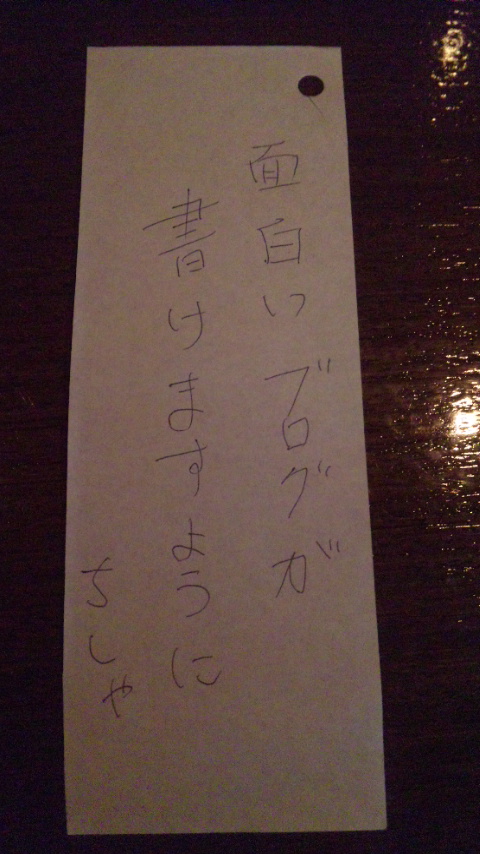 面白いブログが
書けますように
ちしゃ